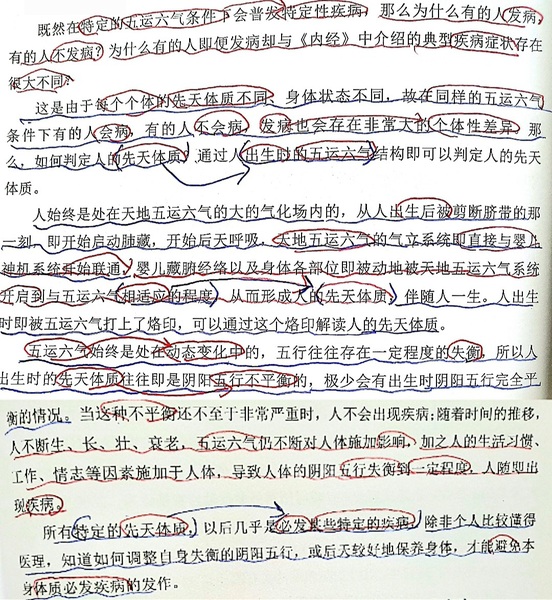 既然在特定的五运六气条件下会普发特定性疾病，那么为什么有的人发病，
有的人不发病？为什么有的人即便发病却与《内经》中介绍的典型疾病症状存在
很大不同？
这是由于每个个体的先天体质不同，身体状态不同，故在同样的五运六气
条件下有的人会病，有的人不会病，发病也会存在非常大的个体性差异。那
么，如何判定人的先天体质，通过人出生时的五运六气结构即可以判定人的先天
体质。
人始终是处在天地五运六气的大的气化场内的，从人出生后被剪断脐带的那
一刻，即开始启动肺藏，开始后天呼吸，天地五运六气的气立系统即直接与婴儿
神机系统开始联通，婴儿藏腑经络以及身体各部位即被动地被天地五运六气系统
开启到与五运六气相适应的程度，从而形成人的先天体质，伴随人一生。人出生
时即被五运六气打上了烙印，可以通过这个烙印解读人的先天体质。
五运六气始终是处在动态变化中的，五行往往存在一定程度的失衡，所以人
出生时的先天体质往往即是阴阳五行不平衡的，极少会有出生时阴阳五行完全平
衡的情况。当这种不平衡还不至于非常严重时，人不会出现疾病；随着时间的推移，
人不断生、长、壮、衰老，五运六气仍不断对人体施加影响，加之人的生活习惯、
工作、情志等因素施加于人体，导致人体的阴阳五行失衡到一定程度，人随即出
现疾病。
所有特定的先天体质，以后几乎是必发某些特定的疾病，除非个人比较懂得
医理，知道如何调整自身失衡的阴阳五行，或后天较好地保养身体，才能避免本
身体质必发疾病的发作。